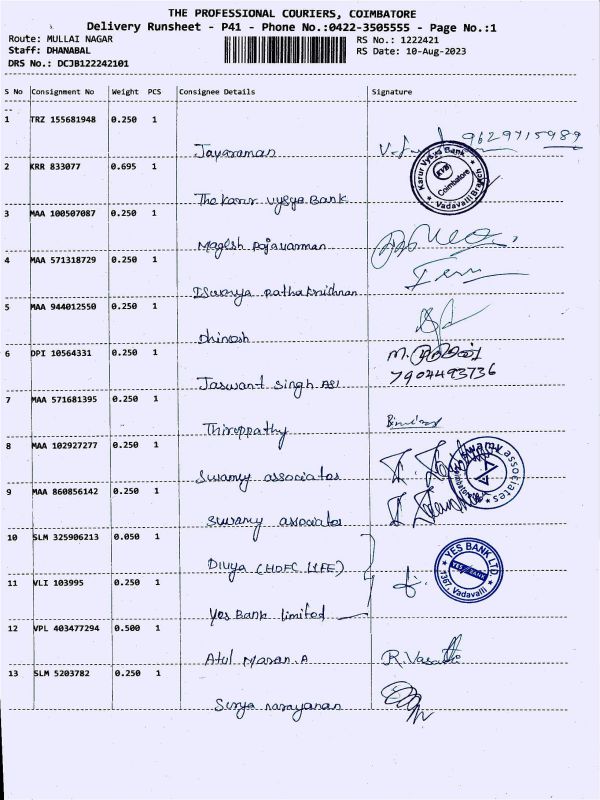 THE PROFESSIONAL COURIERS, COIMBATORE
Delivery Runsheet - P41 - Phone No.:0422-3505555 - Page No.:1
Route: MULLAI NAGAR RS No.: 1222421
Staff: DHANABAL RS Date: 10-Aug-2023
DRS No.: DCJB122242101
S No Consignment No Weight PCS Consignee Details Signature
1 TRZ 155681948 0.250 1
Jayaraman 9629715989
2 KRR 833077 0.695 1
The Karur Vysya Bank
Karur Vysya Bank
KVB
Coimbatore
Vadavalli Branch
3 MAA 100507087 0.250 1
Magesh Rajavarman
4 MAA 571318729 0.250 1
Iswarya Rathakrishnan
5 MAA 944012550 0.250 1
Dhinesh
6 DPI 10564331 0.250 1 M.
Jaswant Singh ASI 7904493736
7 MAA 571681395 0.250 1
Thiroppathy
8 MAA 102927277 0.250 1
Swamy associates
swamy associates
Coimbatore
9 MAA 860856142 0.250 1
swamy associates
10 SLM 325906213 0.050 1
Divya (HDFC LIFE)
YES BANK LTD.
YES BANK
1367, Vadavalli
11 VLI 103995 0.250 1
Yes Bank limited
12 VPL 403477294 0.500 1
Atul Maran.A R.
13 SLM 5203782 0.250 1
Surya narayanan